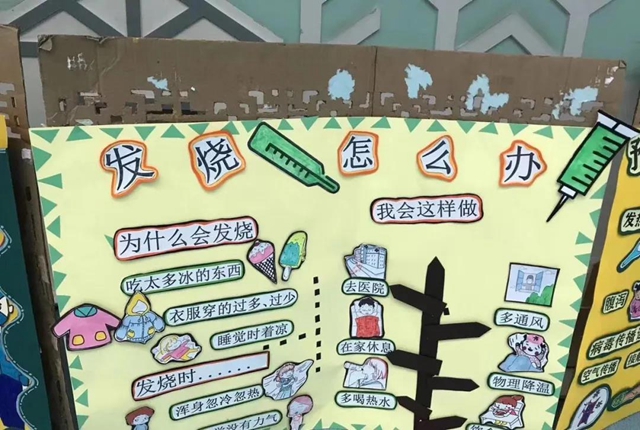 发烧怎么办
为什么会发烧
吃太多冰的东西
衣服穿的过多、过少
睡觉时着凉
发烧时……
浑身忽冷忽热
没有力气
我会这样做
去医院
在家休息
多喝热水
多通风
物理降温
预
发热
腹泻
病毒传播
空气传播